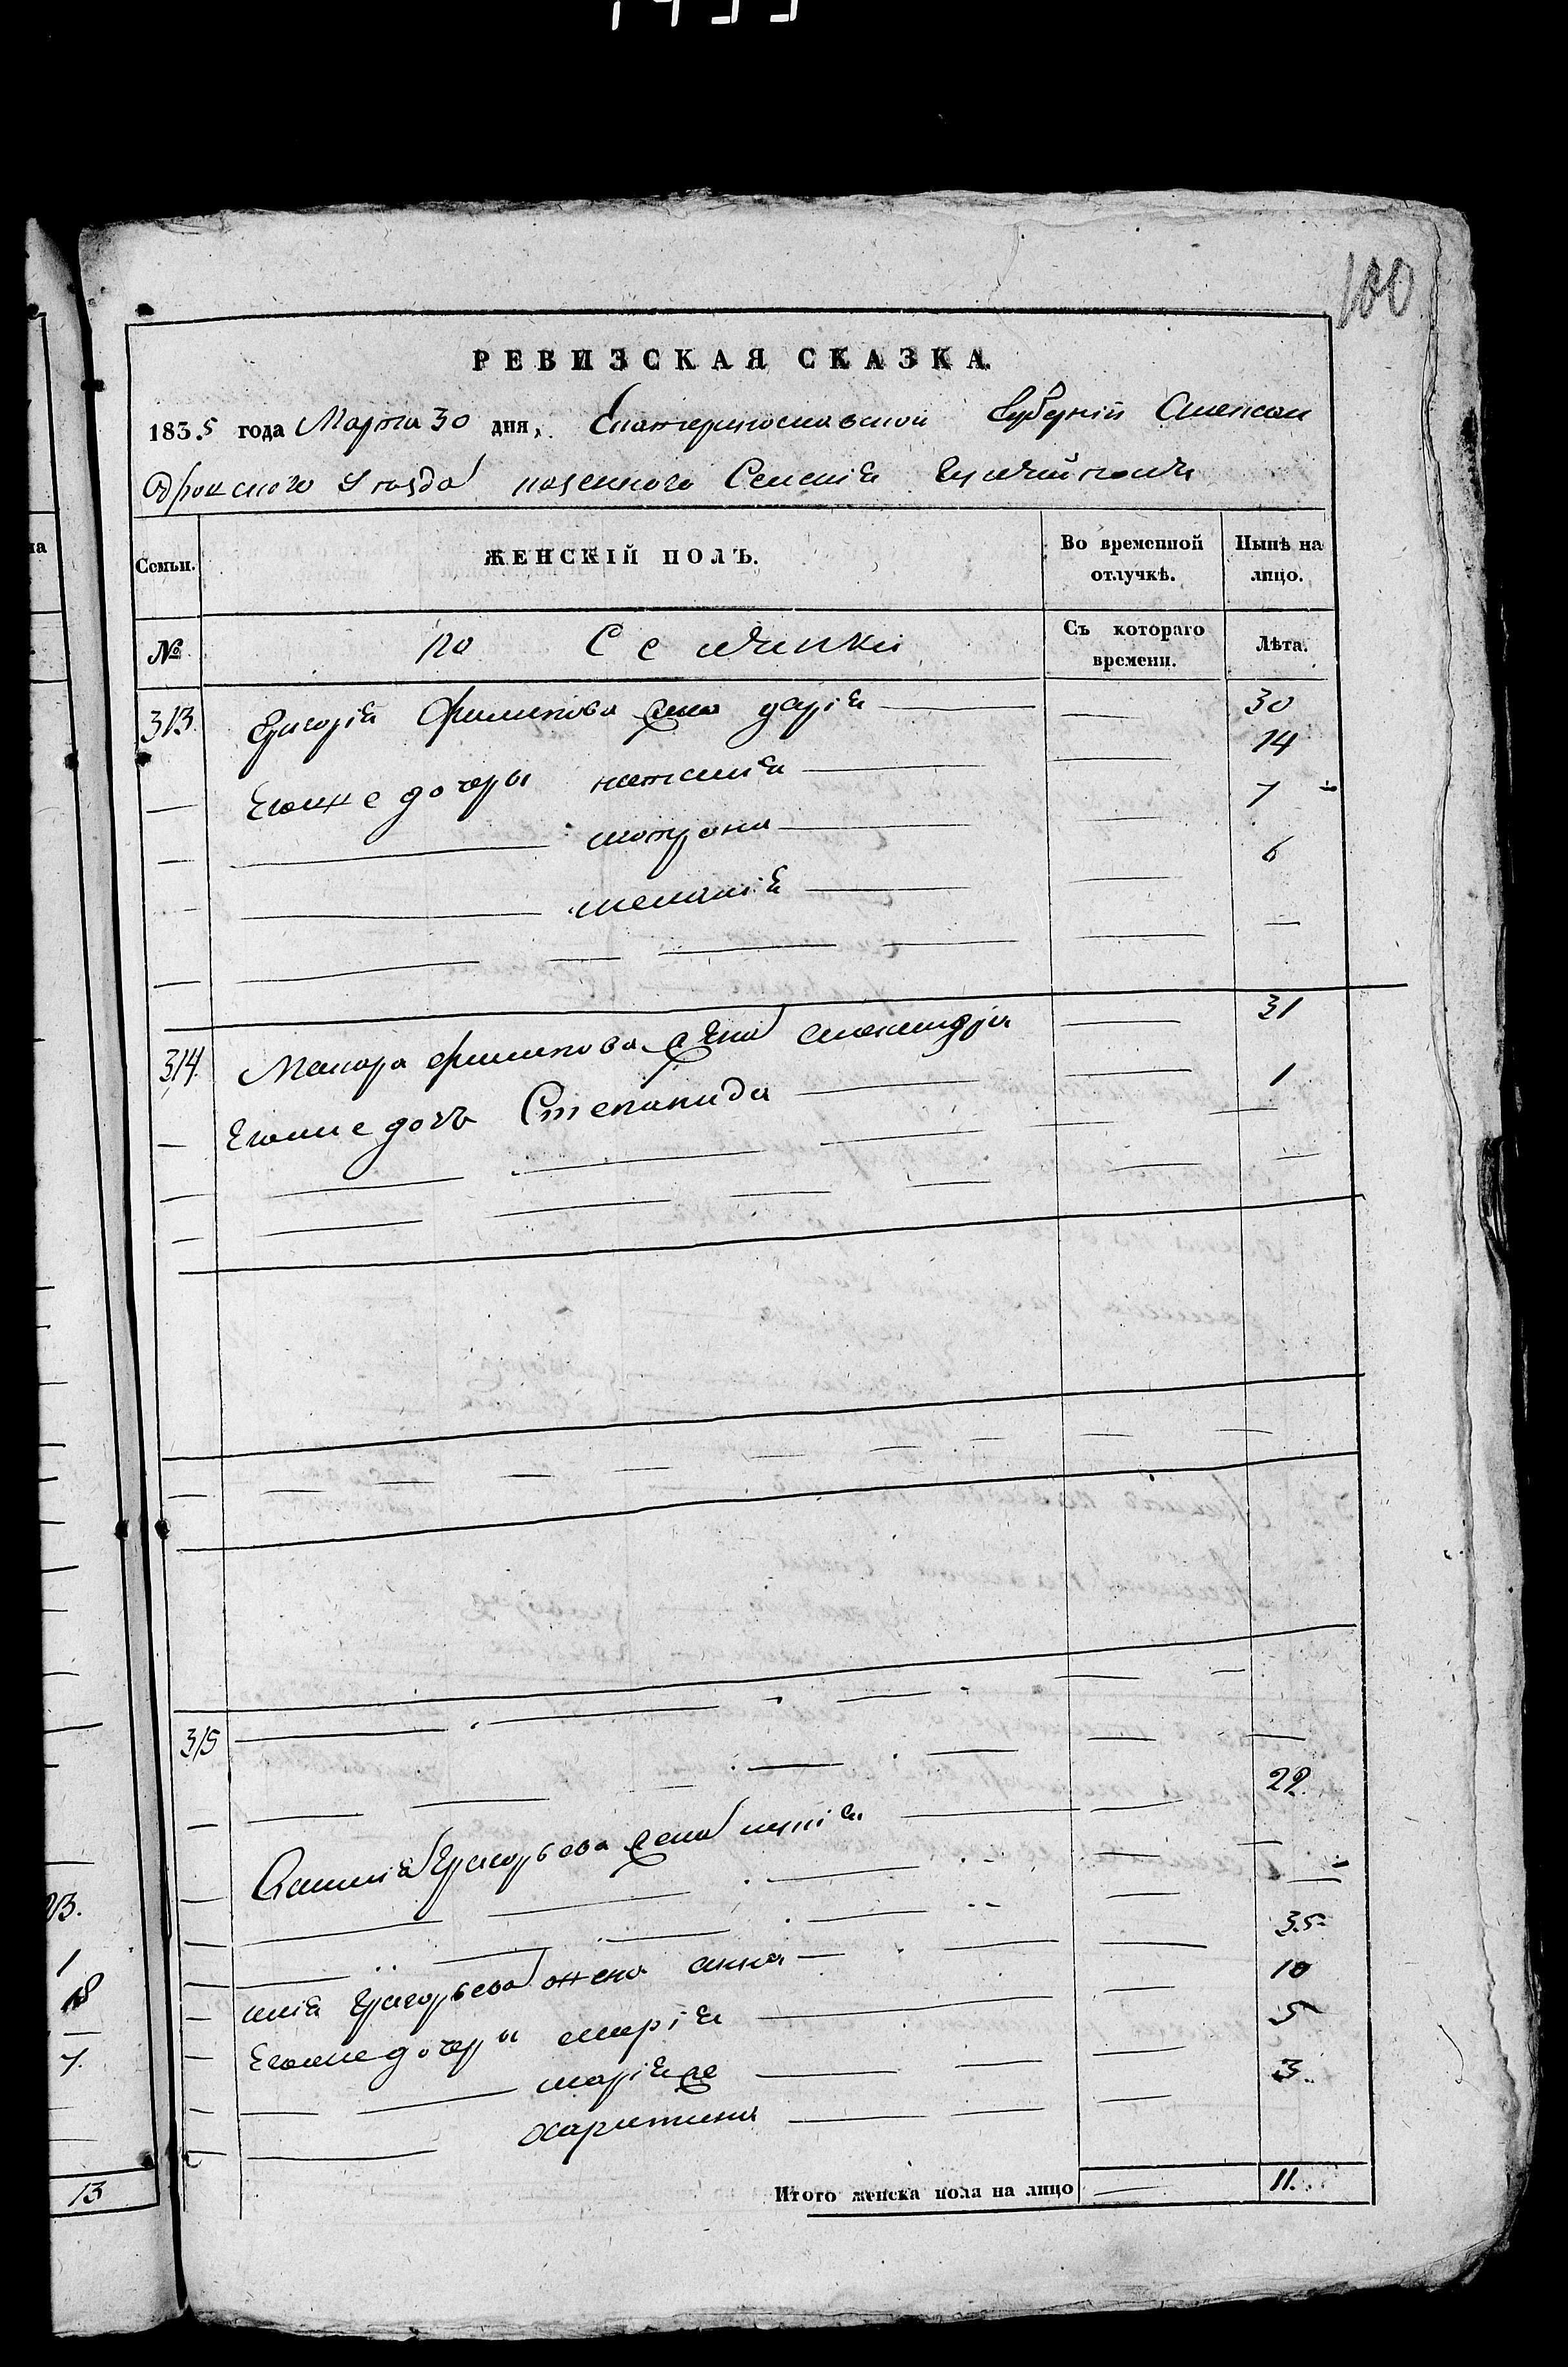 100
РЕВИЗСКАЯ СКАЗКА.
1835 года Марта 30 дня, Екатеринославской Губерній Алексан
дровского Уезда казенного Селенія
Семьи. ЖЕНСКІЙ ПОЛЪ. Во временной отлучкѣ. Нынѣ на лицо.
№ Съ котораго времени. Лѣта.
313 Григорія Филипова жена дарія 30
Егоже дочери наталія 14
мотрона 7
меланія 6
314. Макара филипова жена александра 31
Егоже дочь Степанида 1
315
Григорьева жена 22
Григорьева жена анна 35
Егоже дочери марія 10
марія же 5
харитина 3.
Итого женска пола на лицо 11.
23.
1
18
7.
13